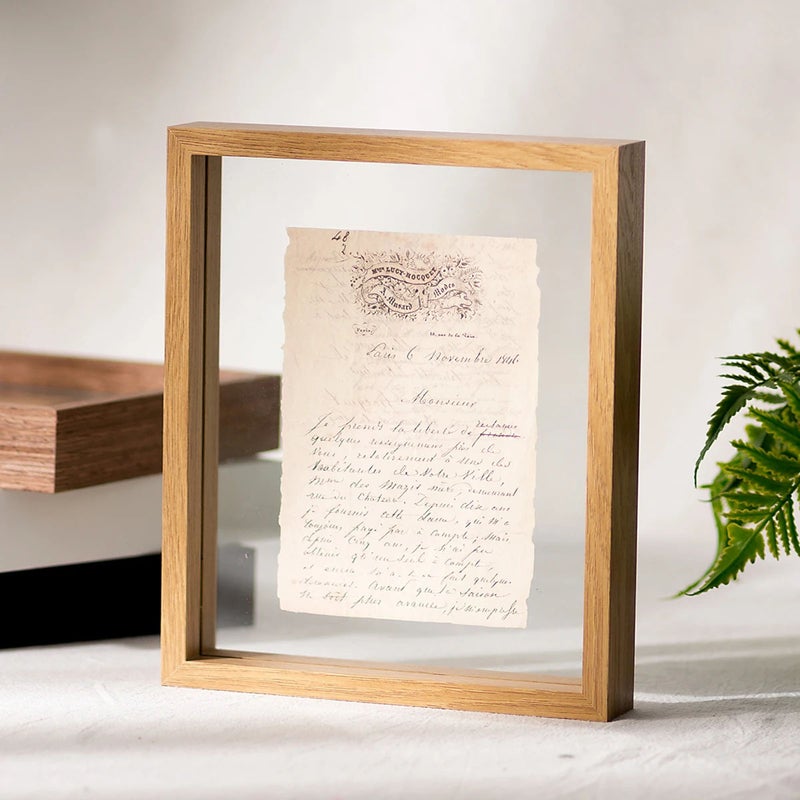 48
Mme LUCY-HOCQUET
A. Musard Modes
Paris 6 Novembre 1846
Monsieur
Je prends la liberté de
quelques renseignemens de
Vous, relativement à une des
habitantes de Votre Ville,
Mme des Mazis née, demeurant
rue du Chateau. Depuis dix ans
je fournis cette Dame, qui m'a
toujours payé par à compte; Mais
depuis Cinq ans, je n'ai pu
obtenir qu'un seul à compte,
et encore m'a-t-on fait quelques
Avant que la saison
ne soit plus avancée, je m'empresse